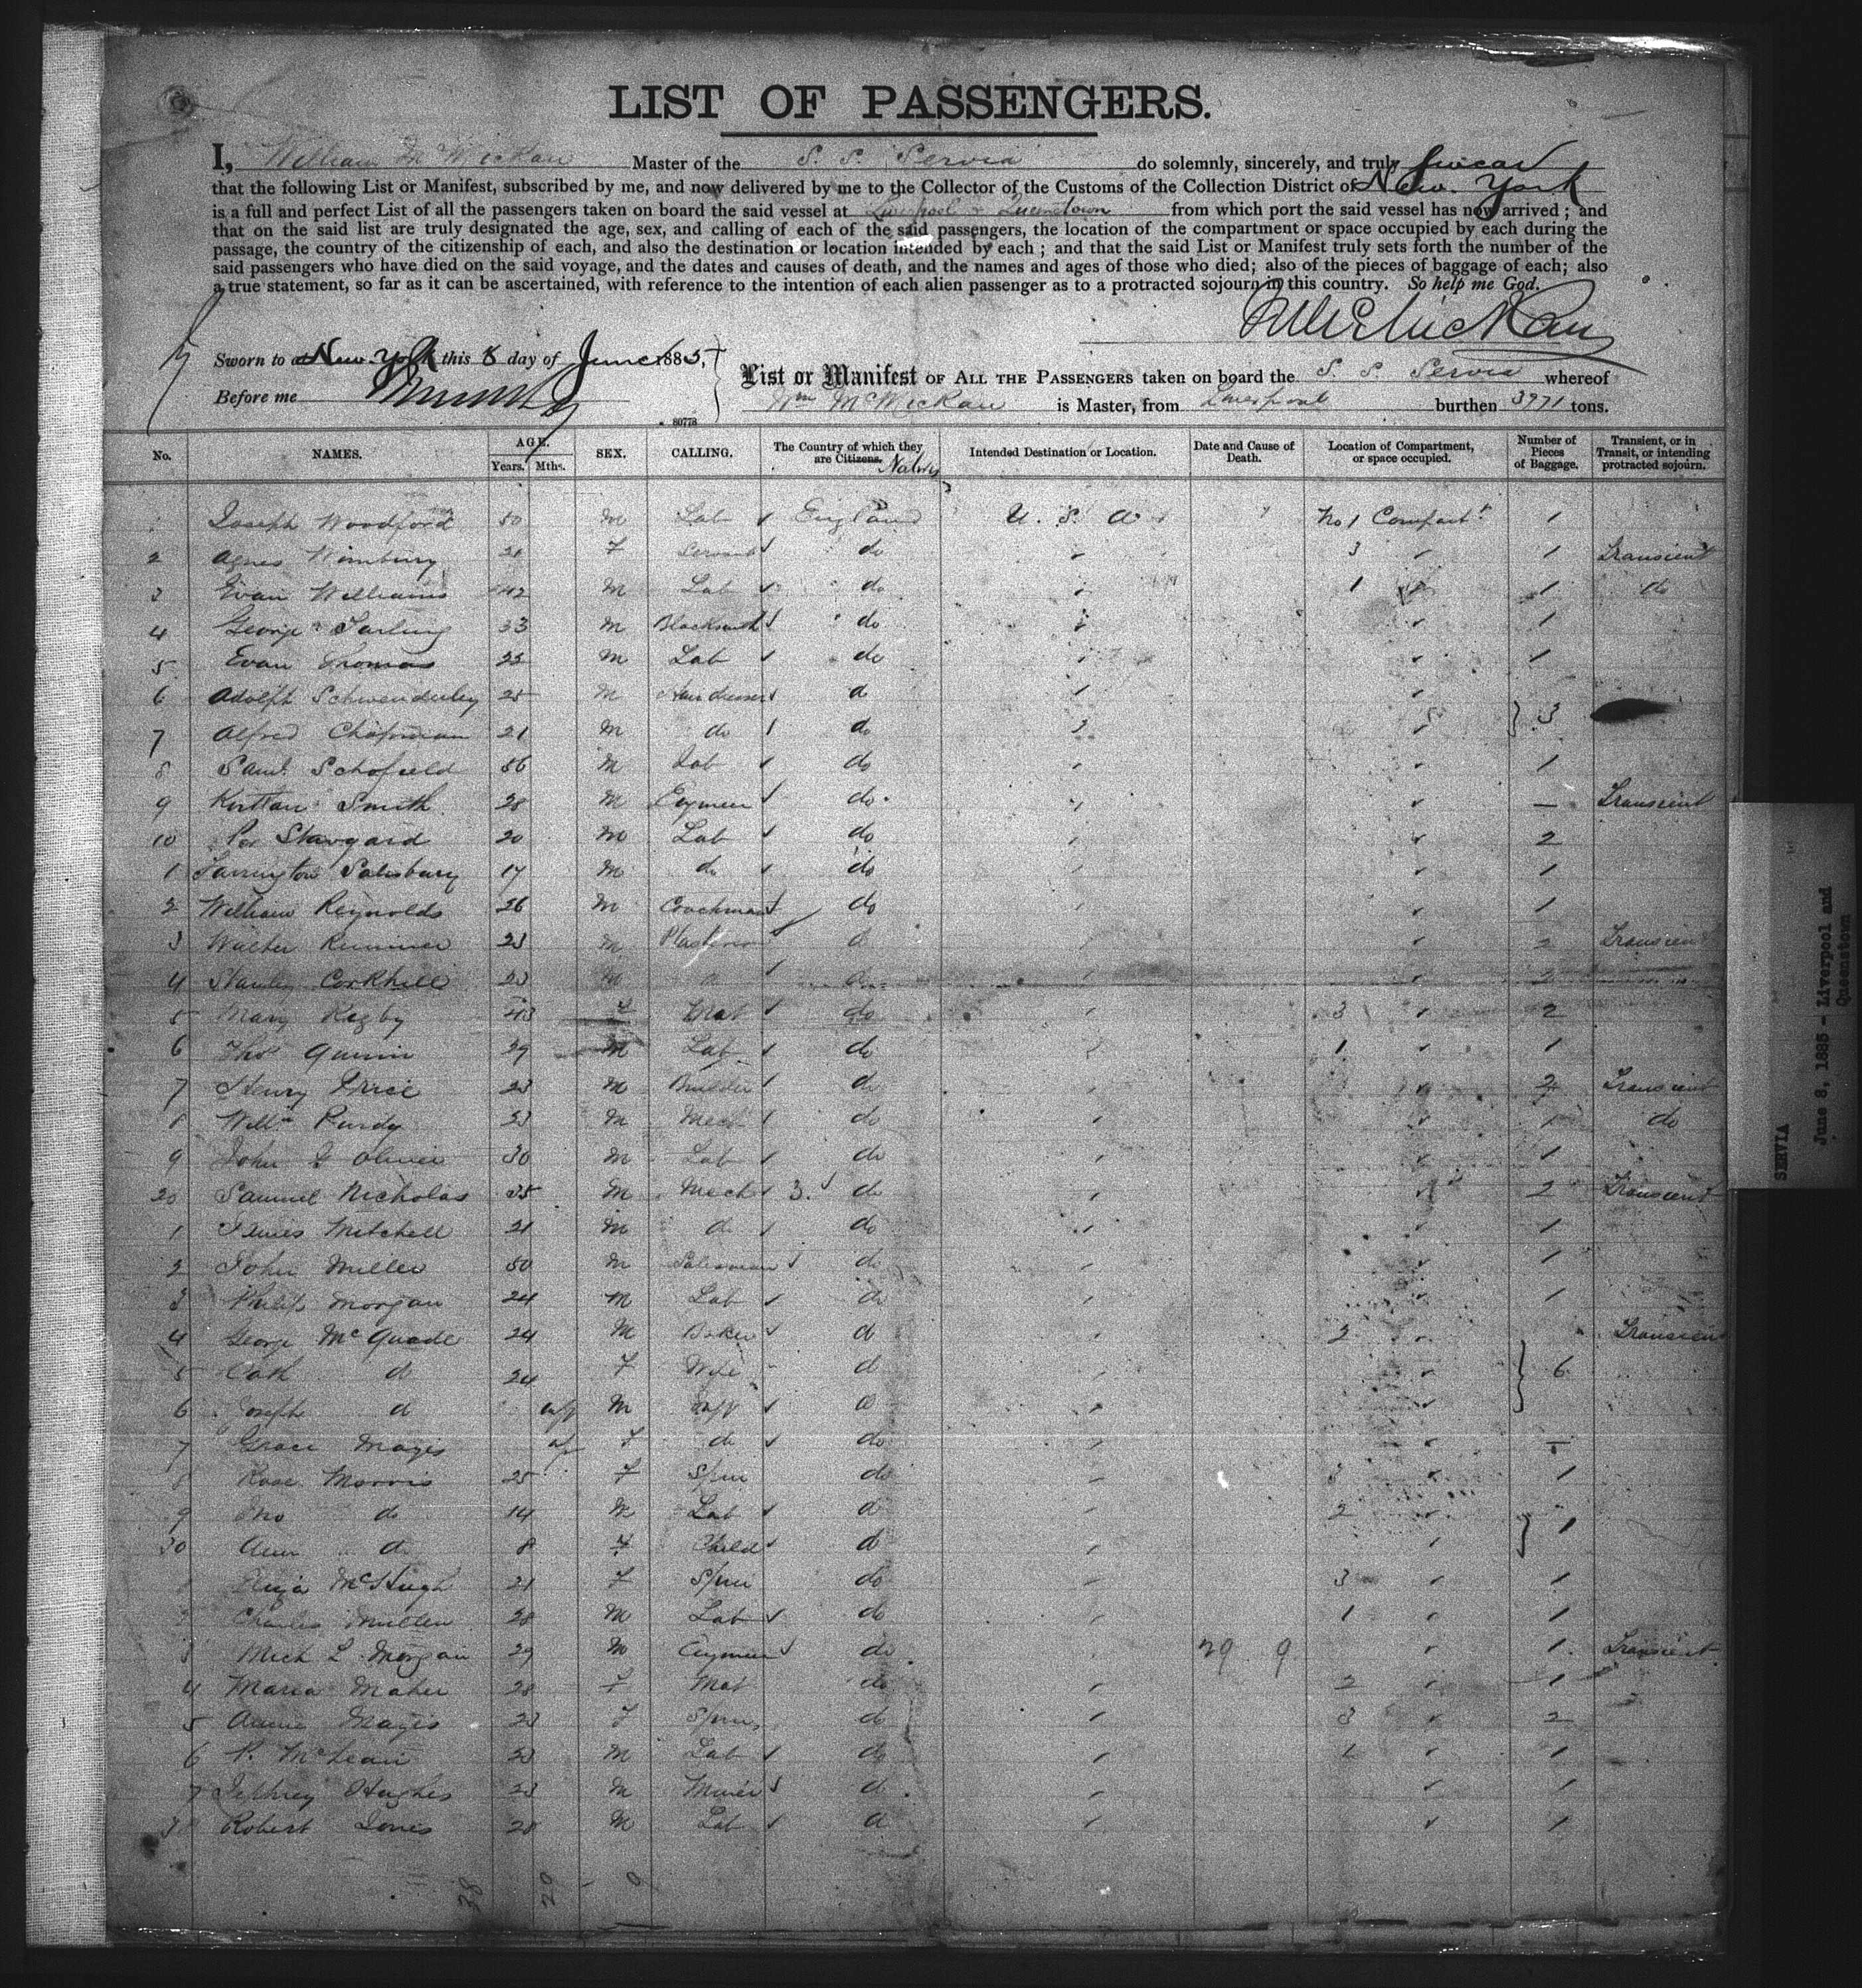 LIST OF PASSENGERS.
I, William McMickan Master of the S. S. Servia do solemnly, sincerely, and truly swear
that the following List or Manifest, subscribed by me, and now delivered by me to the Collector of the Customs of the Collection District of New York
is a full and perfect List of all the passengers taken on board the said vessel at Liverpool & Queenstown from which port the said vessel has now arrived; and
that on the said list are truly designated the age, sex, and calling of each of the said passengers, the location of the compartment or space occupied by each during the
passage, the country of the citizenship of each, and also the destination or location intended by each; and that the said List or Manifest truly sets forth the number of the
said passengers who have died on the said voyage, and the dates and causes of death, and the names and ages of those who died; also of the pieces of baggage of each; also
a true statement, so far as it can be ascertained, with reference to the intention of each alien passenger as to a protracted sojourn in this country. So help me God.
Sworn to at New York this 8 day of June 1885,
Before me
80778
List or Manifest OF ALL THE PASSENGERS taken on board the S. S. Servia whereof
Wm McMickan is Master, from Liverpool burthen 3971 tons.
No. NAMES. AGE. Years. Mths. SEX. CALLING. The Country of which they are Citizens. Natives Intended Destination or Location. Date and Cause of Death. Location of Compartment, or space occupied. Number of Pieces of Baggage. Transient, or in Transit, or intending protracted sojourn.
1 Joseph Woodford 50 M Lab England U. S. A No 1 Compart. 1
2 Agnes 21 F Servant do 3 1 Transient
3 Evan Williams 42 M Lab do 1 1 do
4 George 33 M Blacksmith do 1
5 Evan Thomas 23 M Lab do 1
6 Adolph 25 M Hairdresser do
7 Alfred Chapman 21 M do do 3
8 Saml Schofield 56 M Lab do 1
9 Smith 28 M do — Transient
10 20 M Lab do 2
1 Salisbury 17 M do do 1
2 William Reynolds 26 M Coachman do 1
3 Walter 23 M do 2 Transient
4 Stanley Corkhill 23 M 2
5 Mary Rigby 43 F Mat do 3 2
6 Thos Quinn 29 M Lab do 1 1
7 Henry Price 23 M Builder do 2 Transient
8 Willm Purdy 23 M Mech do 1 do
9 John Oliver 30 M Lab do 1
20 Samuel Nicholas 35 M Mech 3. do 2 Transient
1 James Mitchell 21 M do do 1
2 John Miller 50 M Salesman do 1
3 Philip Morgan 24 M Lab do 1
4 George McQuade 24 M Baker do 2 Transient
5 Cath do 24 F Wife do 6
6 Joseph do inf M Inf do
7 Grace inf F do do —
8 Rose Morris 25 F Spin do 3 1
9 do 14 M Lab do 2
30 Ann do 8 F Child do 1
Eliza McHugh 21 F Spin do 3 1
2 Charles 28 M Lab do 1 1
3 Mich L Morgan 29 M do 29 9 1 Transient
4 Maria Maher 28 F Mat do 2 1
5 Annie 23 F Spin do 3 2
6 P. McLean 23 M Lab do 1 1
7 Hughes 23 M Miner do 1
8 Robert Jones 28 M Lab do 1
38 20 - 0
SERVIA
June 8, 1885 - Liverpool and
Queenstown